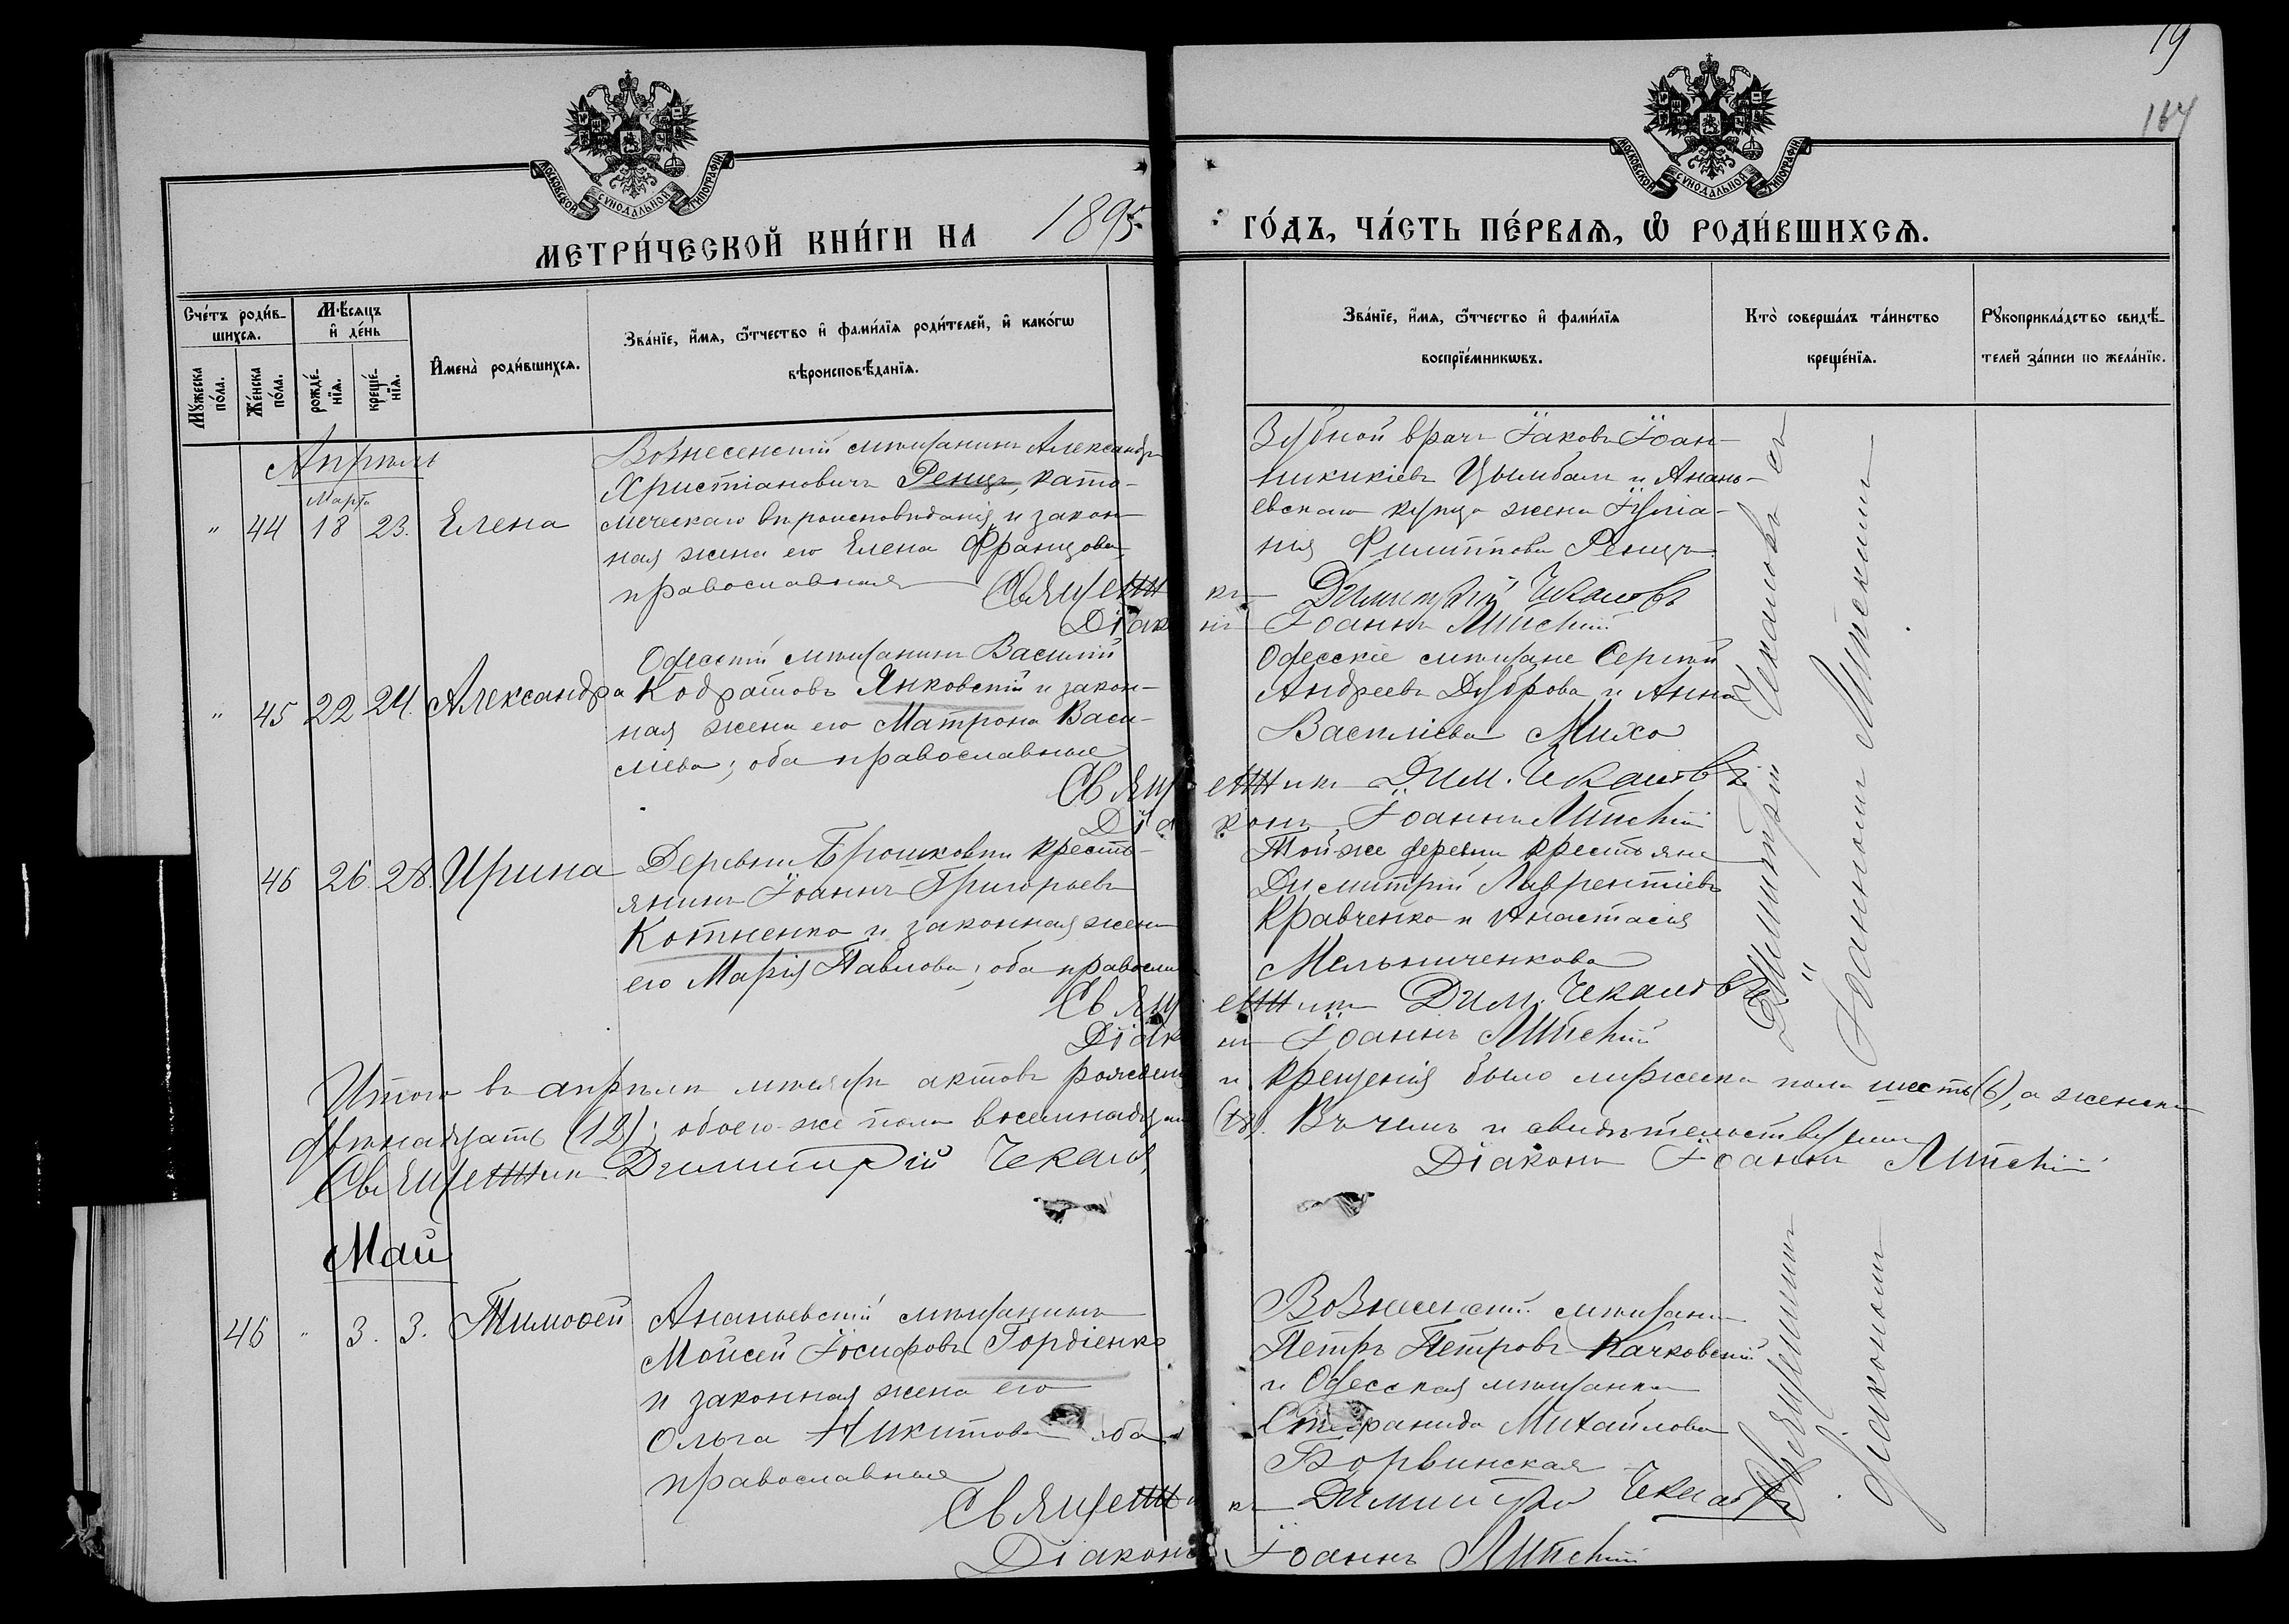 19
164
МОСКОВСКОЙ СѴНОДАЛЬНОЙ ТИПОГРАФІИ
МОСКОВСКОЙ СѴНОДАЛЬНОЙ ТИПОГРАФІИ
МЕТРИ́ЧЕСКОЙ КНИ́ГИ НА 1895 ГО́ДЪ, ЧА́СТЬ ПЕ́РВАЯ, Ѡ РОДИ́ВШИХСЯ.
Сче́тъ роди́в-
шихся.
Мꙋ́жеска по́ла.
Же́нска по́ла.
Мѣ́сяцъ и де́нь
рожде́-
нїя.
креще́-
нїя.
Имена̀ роди́вшихся.
Зва́нїе, и́мя, ѻ҆́тчество и фами́лїя роди́телей, и како́гѡ
вѣроисповѣ́данїя.
Зва́нїе, и́мя, ѻ҆́тчество и фами́лїя
воспрїе́мникѡвъ.
Кто̀ соверша́лъ та́инство
креще́нїя.
Рꙋкоприкла́дство свидѣ́-
телей за́писи по жела́нїю.
Апрѣль
Марта
" 44 18 23. Елена
Вознесенскій мѣщанинъ Александръ
Христіановичъ Ренцъ, като-
лическаго вѣроисповѣданія и закон-
ная жена его Елена Францова,
православная
Зубной врачъ Іаковъ Іоан-
никикіевъ Цымбалъ и Анань-
евскаго купца жена Іуліа-
нія Филиппова Ренцъ.
Священникъ Димитрій Чекаловъ
Діаконъ Іоаннъ Липскій
" 45 22 24. Александра
Одесскій мѣщанинъ Василій
Кодратовъ Янковскій и закон-
ная жена его Матрона Васи-
ліева; оба православные
Одесскіе мѣщане Сергій
Андреевъ Дуброва и Анна
Василіева Михо
Священникъ Дим. Чекаловъ
Діаконъ Іоаннъ Липскій
46 26. 28. Ирина
Деревни Брошковки кресть-
янинъ Іоаннъ Григорьевъ
Котненко и законная жена
его Марія Павлова; оба правосла
Той же деревни крестьяне
Димитрій Лаврентіевъ
Кравченко и Анастасія
Мельниченкова
Священникъ Дим. Чекаловъ
Діаконъ Іоаннъ Липскій
Димитрій Чекаловъ съ
Іоанномъ Липскимъ
Итого въ апрѣлѣ мѣсяцѣ актовъ рожденія и крещенія было мужеска пола шесть (6), а женска
двѣнадцать (12); обоего же пола восемнадцать (18). Въ чемъ и свидѣтельствуемъ
Священникъ Димитрій Чекаловъ
Діаконъ Іоаннъ Липскій
Май
46 " 3. 3. Тимоѳей
Ананьевскій мѣщанинъ
Моисей Іосифовъ Гордіенко
и законная жена его
Ольга Никитова оба
православные
Вознесенскій мѣщанинъ
Петръ Петровъ Качковскій
и Одесская мѣщанка
Стефанида Михайлова
Борвинская
Священникъ Димитрій Чекаловъ
Діаконъ Іоаннъ Липскій
Священникъ
Діакономъ